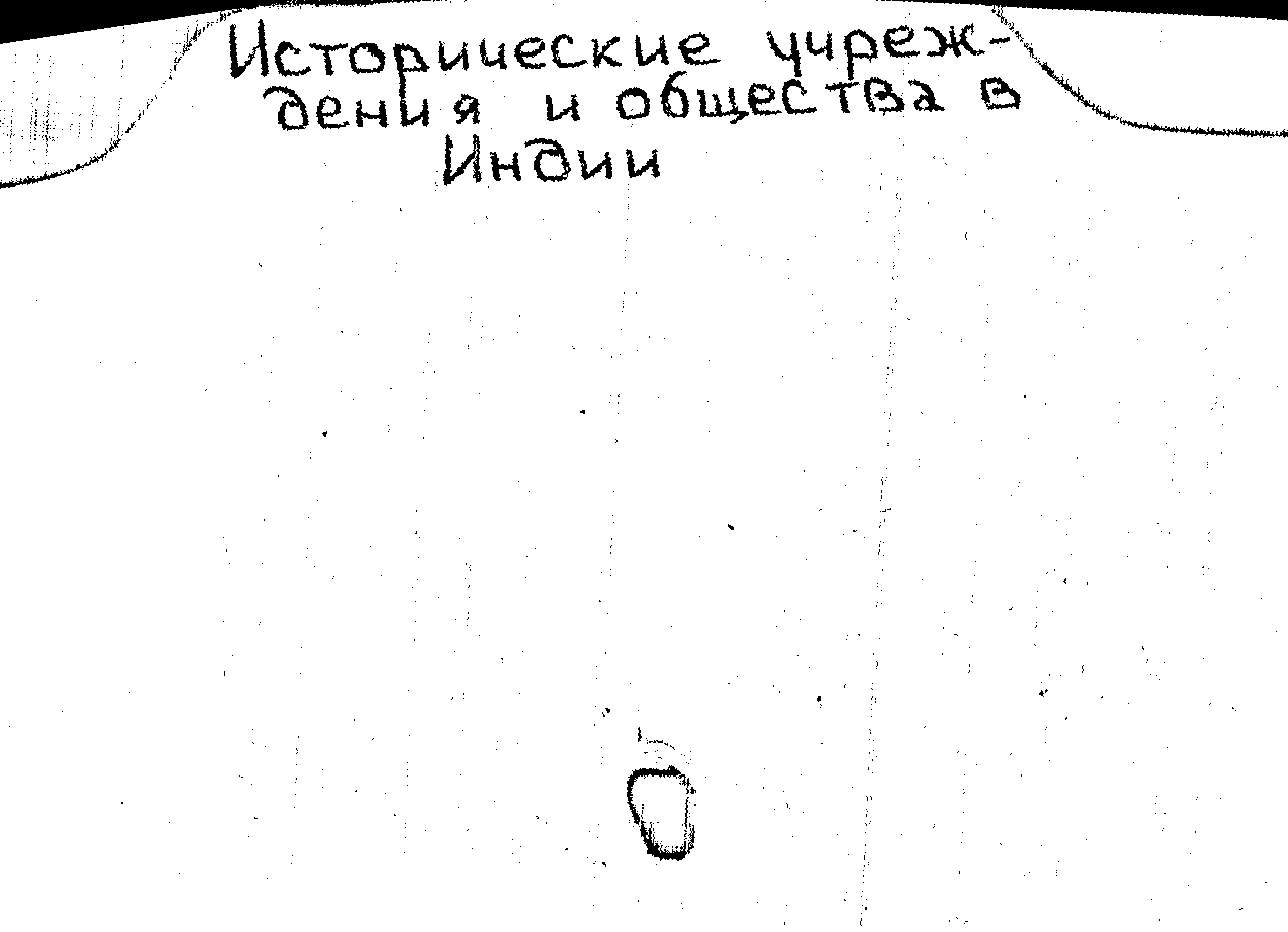 Исторические учреж-
дения и общества в
Индии